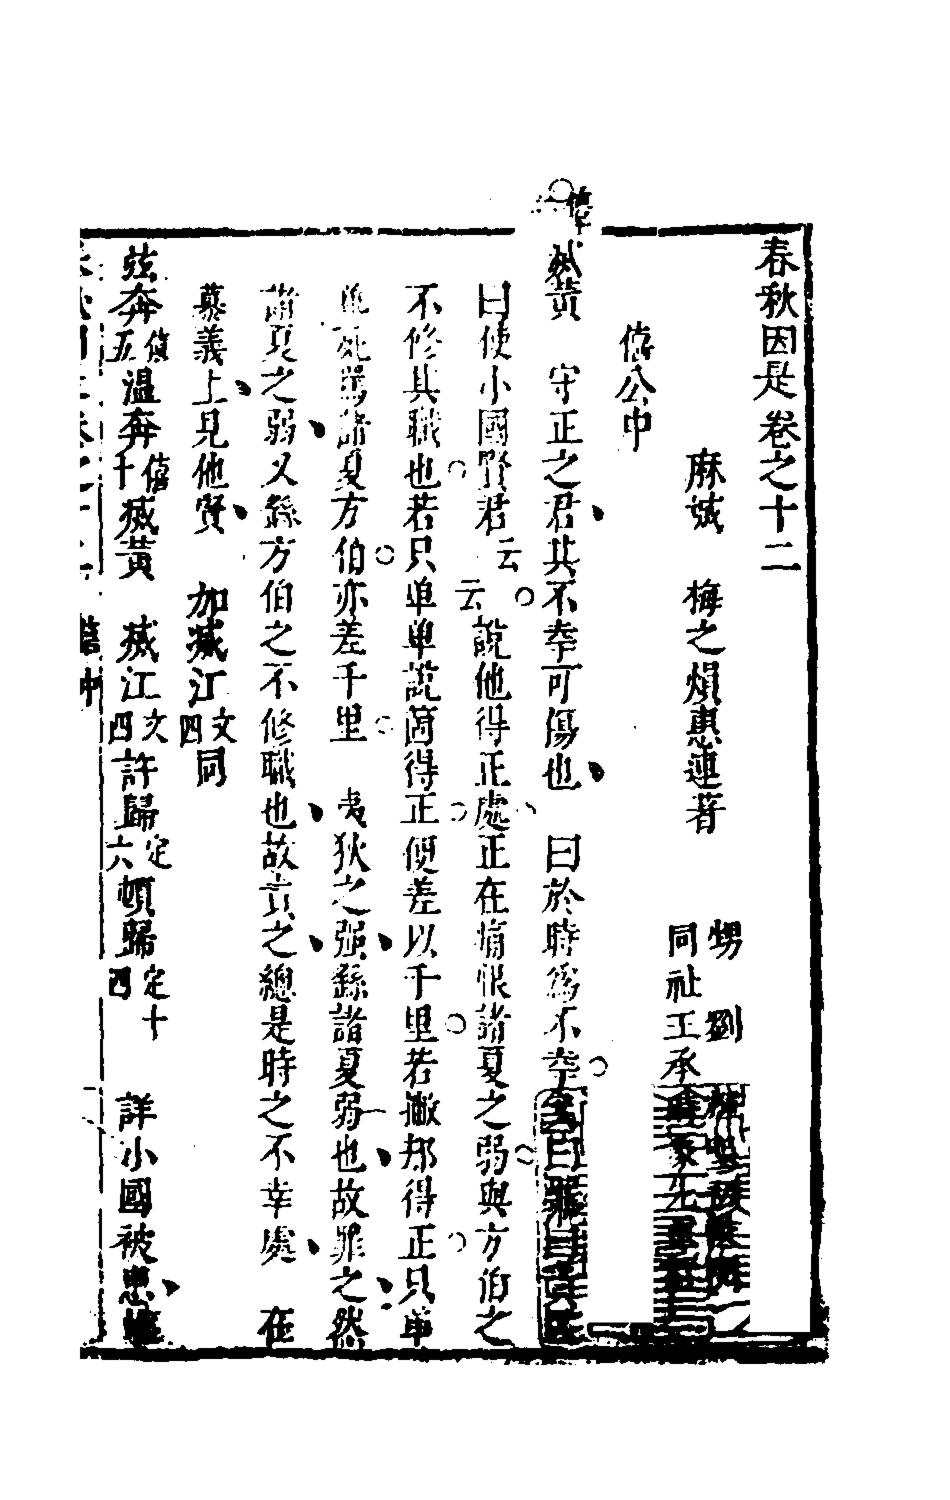 春秋因是卷之十二
麻城　梅之熉惠連著
甥　劉
同社王承
僖公中
滅黃　守正之君其不幸可傷也　曰於時爲不幸
曰使小國賢君云云說他得正處正在痛恨諸夏之弱與方伯之
不修其職也若只單單說箇得正便差以千里若撇却得正只單
單死罵諸夏方伯亦差千里　夷狄之强繇諸夏弱也故罪之然
諸夏之弱又繇方伯之不修職也故責之總是時之不幸處　在
慕義上見他賢　加滅江文四同
弦奔僖五溫奔僖十滅黃　滅江文四許歸定六頓歸定十四　詳小國被患